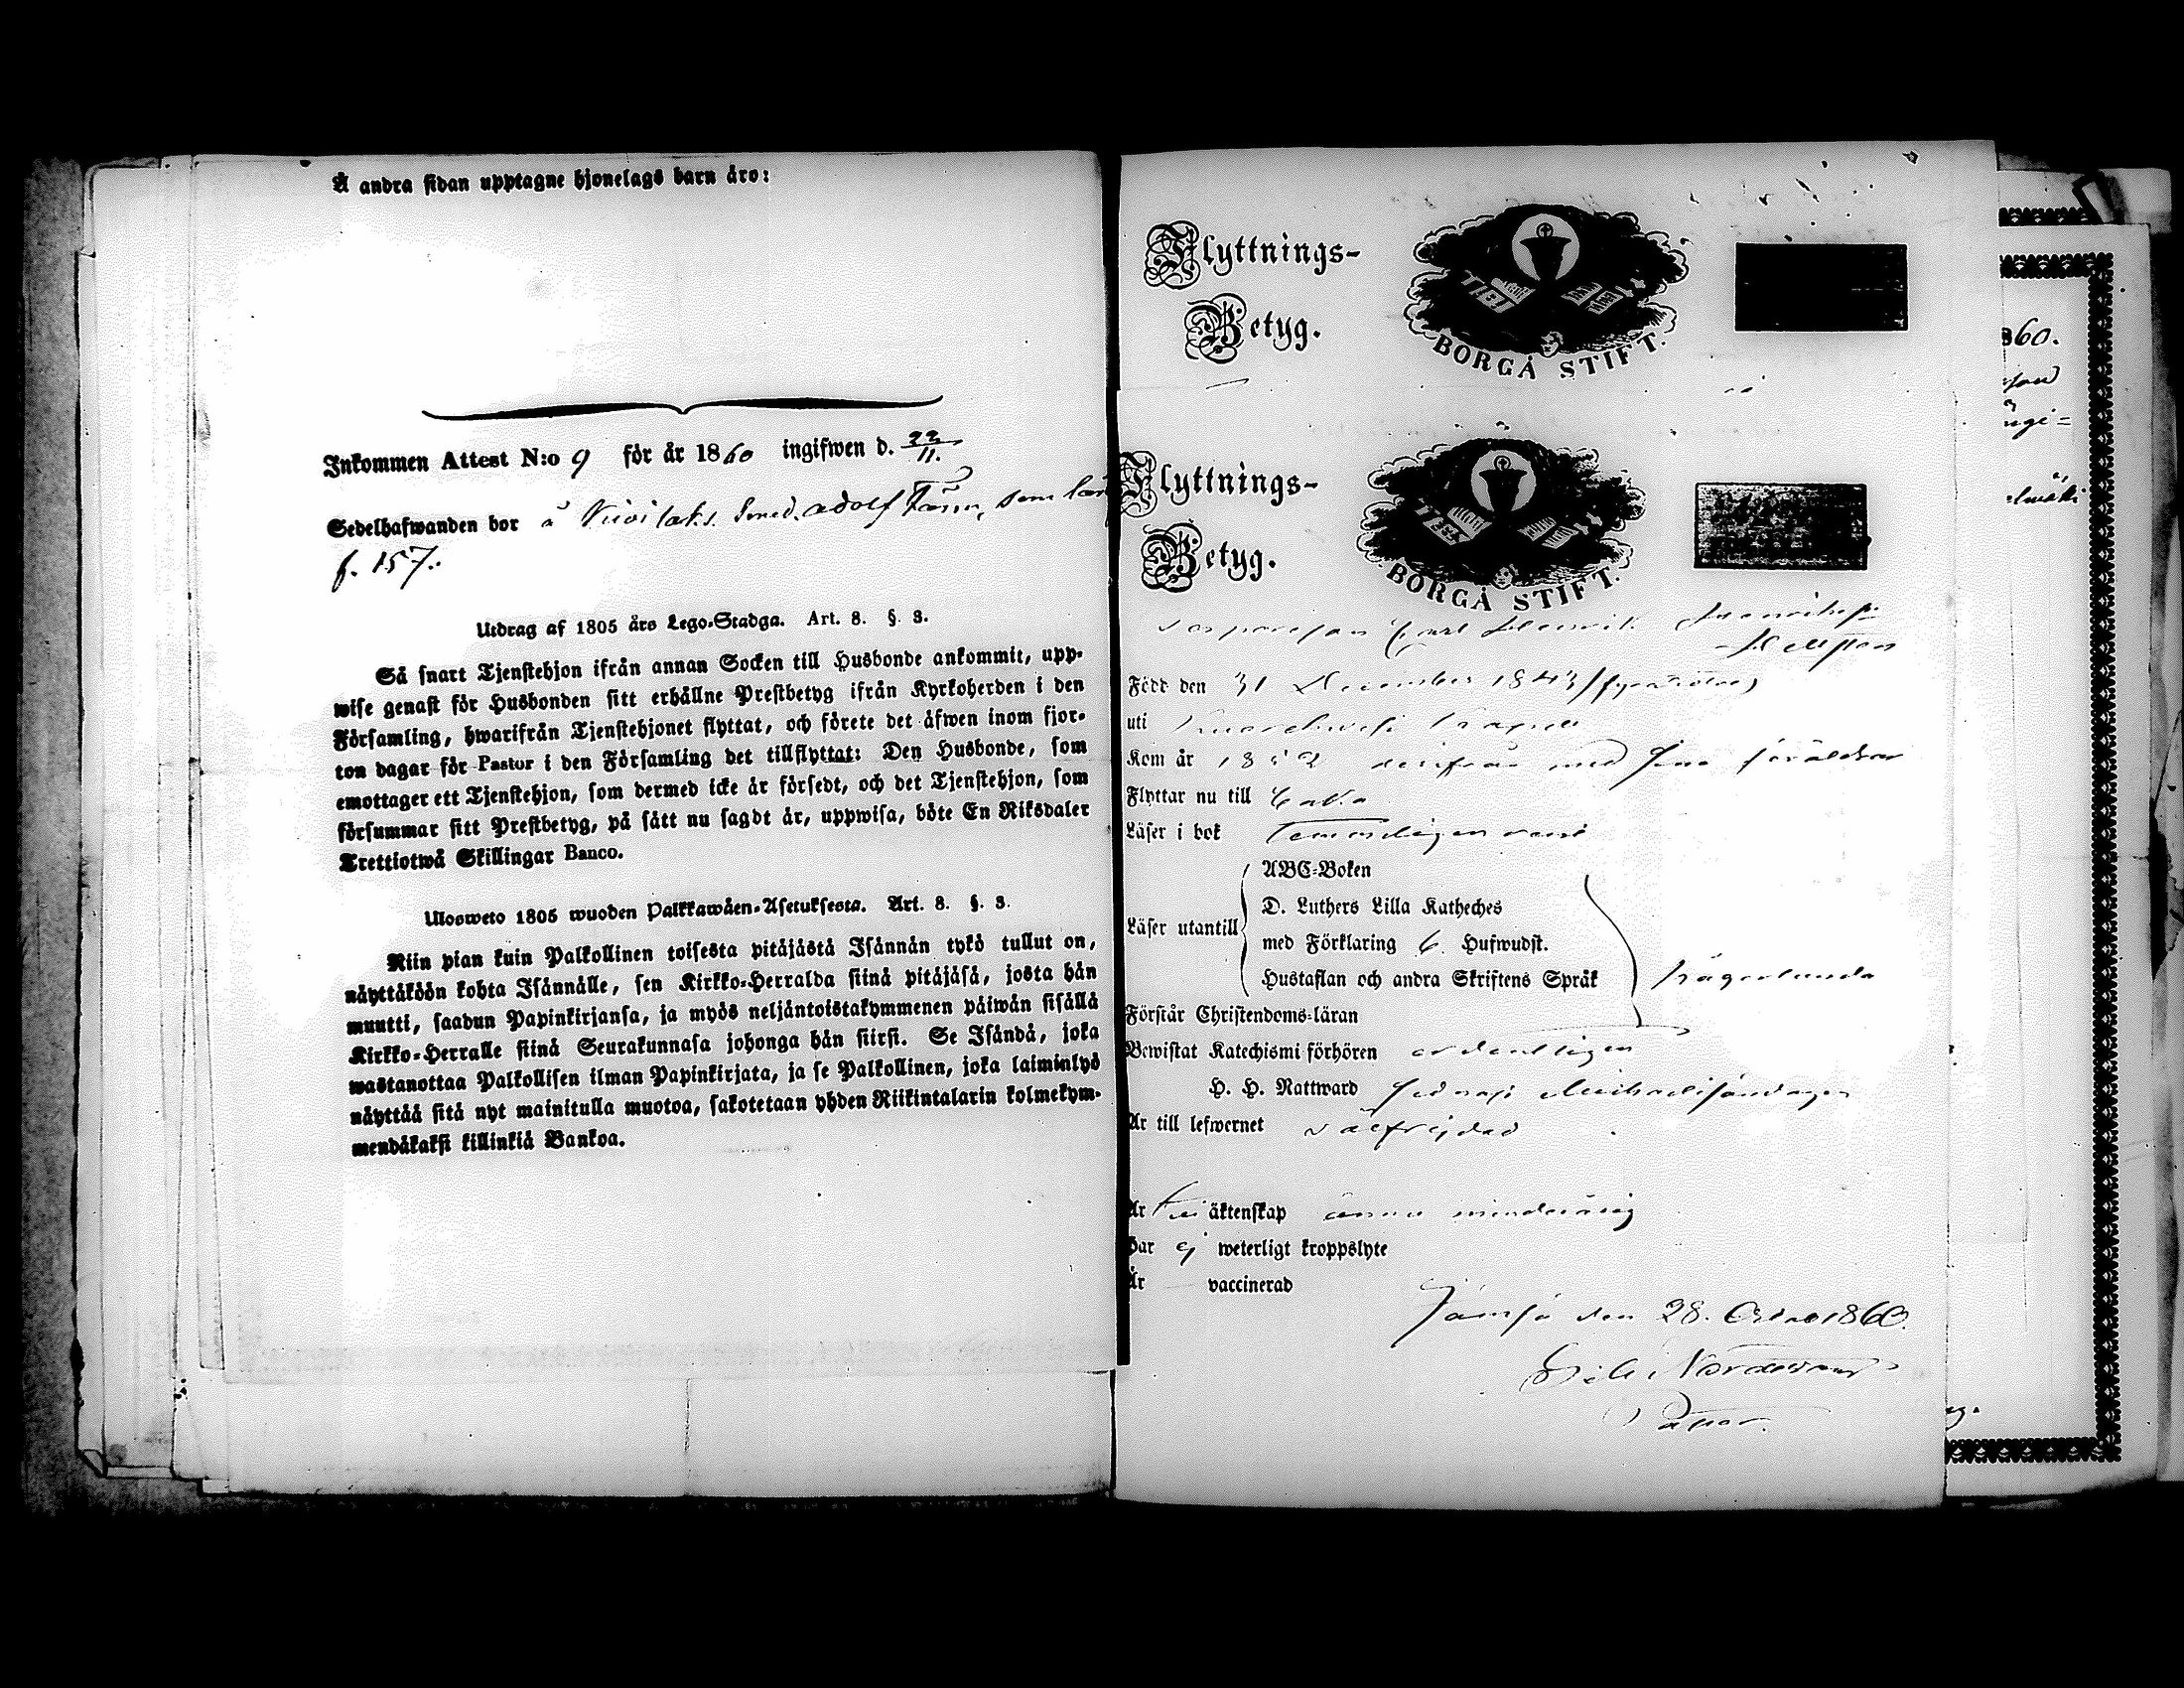 Å andra sidan upptagne hjonelags barn äro:
Inkommen Attest N:o 9 för år 1860 ingifwen d. 22/11.
Sedelhafwanden bor å Smed. Adolf som
f. 157.
Utdrag af 1805 års Lego-Stadga. Art. 8. §. 3.
Så snart Tjenstehjon ifrån annan Socken till Husbonde ankommit, upp-
wise genast för Husbonden sitt erhållne Prestbetyg ifrån Kyrkoherden i den
Församling, hwarifrån Tjenstehjonet flyttat, och förete det äfwen inom fjor-
ton dagar för Pastor i den Församling det tillflyttat: Den Husbonde, som
emottager ett Tjenstehjon, som dermed icke är försedt, och det Tjenstehjon, som
försummar sitt Prestbetyg, på sätt nu sagdt är, uppwisa, böte En Riksdaler
Trettiotwå Skillingar Banco.
Ulosweto 1805 wuoden Palkkawäen-Asetuksesta. Art. 8. §. 3.
Niin pian kuin Palkollinen toisesta pitäjästä Isännän tykö tullut on,
näyttäköön kohta Isännälle, sen Kirkko-Herralda siinä pitäjäsä, josta hän
muutti, saadun Papinkirjansa, ja myös neljäntoistakymmenen päiwän sisällä
Kirkko-Herralle siinä Seurakunnasa johonga hän siirsi. Se Isändä, joka
wastanottaa Palkollisen ilman Papinkirjata, ja se Palkollinen, joka laiminlyö
näyttää sitä nyt mainitulla muotoa, sakotetaan yhden Riikintalarin kolmekym-
mendäkaksi killinkiä Bankoa.
Flyttnings-
Betyg.
TIBI
BORGÅ STIFT.
Flyttnings-
Betyg.
TIBI
BORGÅ STIFT.
Carl Henrik Henriksson
Född den 31 December 1843
uti Kapell
Kom år 1852 derifrån med sina föräldrar
Flyttar nu till
Läser i bok temmeligen rent
ABC-Boken
D. Luthers Lilla Katheches
Läser utantill
med Förklaring 6. Hufwudst.
Hustaflan och andra Skriftens Språk
Förstår Christendoms-läran
Bewistat Katechismi förhören ordentligen
H. H. Nattward sednast Michaelisöndagen
Är till lefwernet välfrejdad
Är till äktenskap ännu minderårig
Har ej weterligt kroppslyte
Är vaccinerad
Jämsä den 28. 1860.
860.